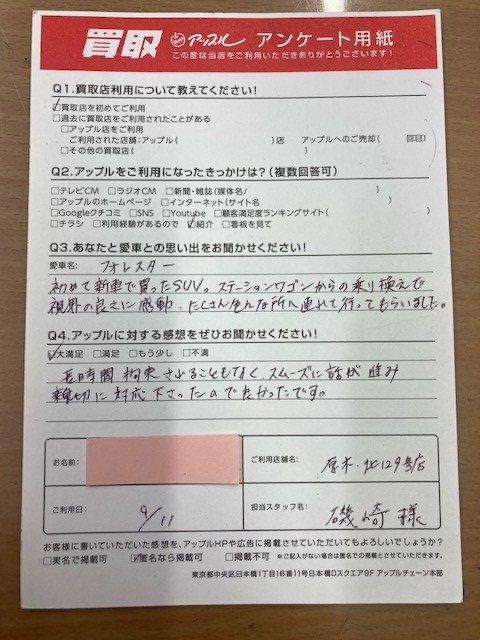 買取 アップル アンケート用紙
この度は当店をご利用いただきありがとうございます!
Q1.買取店利用について教えてください!
☑買取店を初めてご利用
□過去に買取店をご利用されたことがある
□アップル店をご利用
ご利用された店舗:アップル( )店 アップルへのご売却( 回目)
□その他の買取店( )
Q2.アップルをご利用になったきっかけは?(複数回答可)
□テレビCM □ラジオCM □新聞・雑誌(媒体名/ )
□アップルのホームページ □インターネット(サイト名 )
□Googleクチコミ □SNS □Youtube □顧客満足度ランキングサイト( )
□チラシ □利用経験があるので ☑紹介 □看板を見て
Q3.あなたと愛車との思い出をお聞かせください!
愛車名: フォレスター
初めて新車で買ったSUV。ステーションワゴンからの乗り換えで
視界の良さに感動。たくさん色んな所へ連れて行ってもらいました。
Q4.アップルに対する感想をぜひお聞かせください!
☑大満足 □満足 □もう少し □不満
長時間拘束されることもなくスムーズに話が進み
親切に対応下さったので良かったです。
お名前:
ご利用店舗名: 厚木・北129号店
ご利用日: 9/11
担当スタッフ名: 磯崎様
お客様に書いていただいた感想を、アップルHPや広告に掲載させていただいてもよろしいでしょうか?
□実名で掲載可 ☑匿名なら掲載可 □掲載不可 ※ご記入がない場合は匿名での掲載とさせていただきます。
東京都中央区日本橋1丁目16番11号日本橋Dスクエア9F アップルチェーン本部